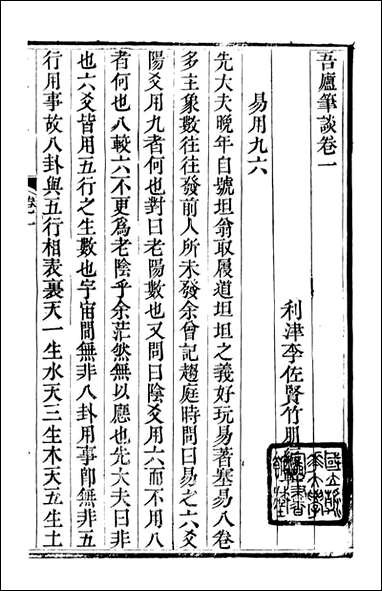 吾廬筆談卷一
利津李佐賢竹朋
易用九六
先大夫晚年自號坦翁取履道坦坦之義好玩易著塞易八卷
多主象數往往發前人所未發余曾記趨庭時問曰易之六爻
陽爻用九者何也對曰老陽數也又問曰陰爻用六而不用八
者何也八較六不更為老陰乎余茫然無以應也先大夫曰非
也六爻皆用五行之生數也宇宙間無非八卦用事卽無非五
行用事故八卦與五行相表裏天一生水天三生木天五生土
卷一